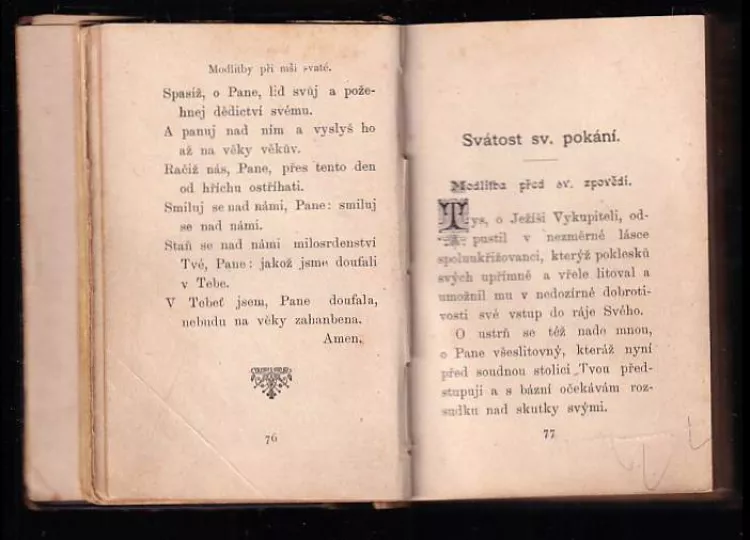 Modlitby při mši svaté.
Spasiž, o Pane, lid svůj a pože-
hnej dědictví svému.
A panuj nad ním a vyslyš ho
až na věky věkův.
Račiž nás, Pane, přes tento den
od hříchu ostříhati.
Smiluj se nad námi, Pane: smiluj
se nad námi.
Staň se nad námi milosrdenství
Tvé, Pane: jakož jsme doufali
v Tebe.
V Tebeť jsem, Pane doufala,
nebudu na věky zahanbena.
Amen.
76
Svátost sv. pokání.
Modlitba před sv. zpovědí.
Tys, o Ježíši Vykupiteli, od-
pustil v nezměrné lásce
spoluukřižovanci, kterýž poklesků
svých upřímně a vřele litoval a
umožnil mu v nedozírné dobroti-
vosti své vstup do ráje Svého.
O ustrň se též nade mnou,
o Pane všeslitovný, kteráž nyní
před soudnou stolici Tvou před-
stupuji a s bázní očekávám roz-
sudku nad skutky svými.
77